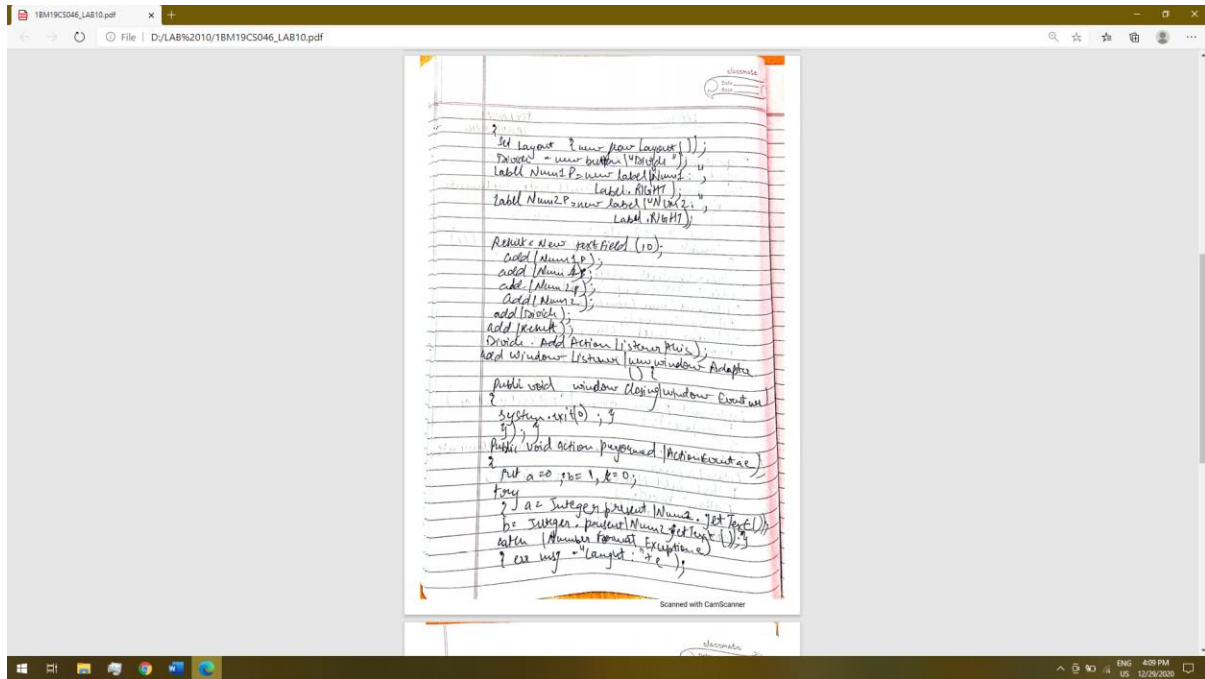 1BM19CS046_LAB10.pdf
File | D:/LAB%2010/1BM19CS046_LAB10.pdf
classmate
Date
Page
{
Set Layout (new flow Layout());
Divide = new button ("Divide");
Label Num1P = new label (Num1: ",
Label.RIGHT);
Label Num2P = new label ("Num2: ",
Label.RIGHT);
Result = New textField (10);
add (Num1P);
add (Num1);
add (Num2P);
add (Num2);
add (Divide);
add (Result);
Divide. Add Action Listener this);
add Window Listener (new window Adapter
() {
Public void window closing (window Event we)
{
System.exit(0); }
}); }
Public void action performed (ActionEvent ae)
{
a=0, b=1, k=0;
try
{ a= Integer (Num1. getText());
b= Integer. (Num2 getText()); }
catch (Number Format Exception e)
{ err msg = "Caught: "+e);
Scanned with CamScanner
classmate
ENG 4:09 PM
US 12/29/2020